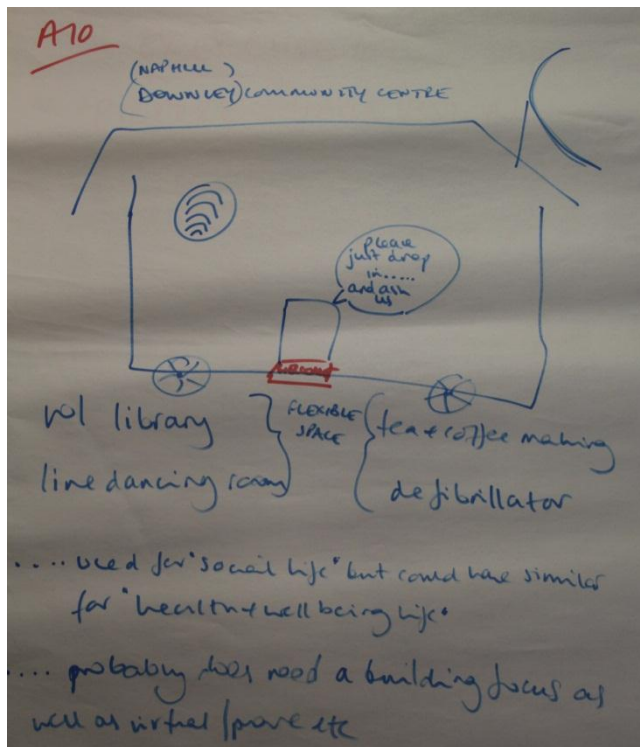 A10
(NAPHILL)
(DOWNLEY) COMMUNITY CENTRE
please
just drop
in.....
and ask
us
welcome
vol library
line dancing room
FLEXIBLE
SPACE
tea + coffee making
defibrillator
.... used for "social life" but could have similar
for "health + well being life"
.... probably does need a building focus as
well as virtual / phone etc